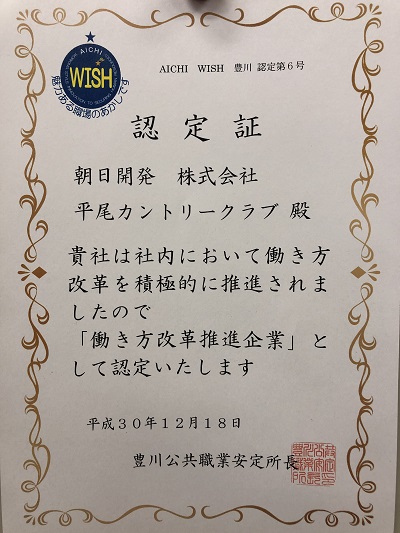 AICHI WISH 豊川 認定第6号
AICHI
WISH
魅力ある職場のあかしです
認定証
朝日開発 株式会社
平尾カントリークラブ 殿
貴社は社内において働き方
改革を積極的に推進されま
したので
「働き方改革推進企業」と
して認定いたします
平成30年12月18日
豊川公共職業安定所長